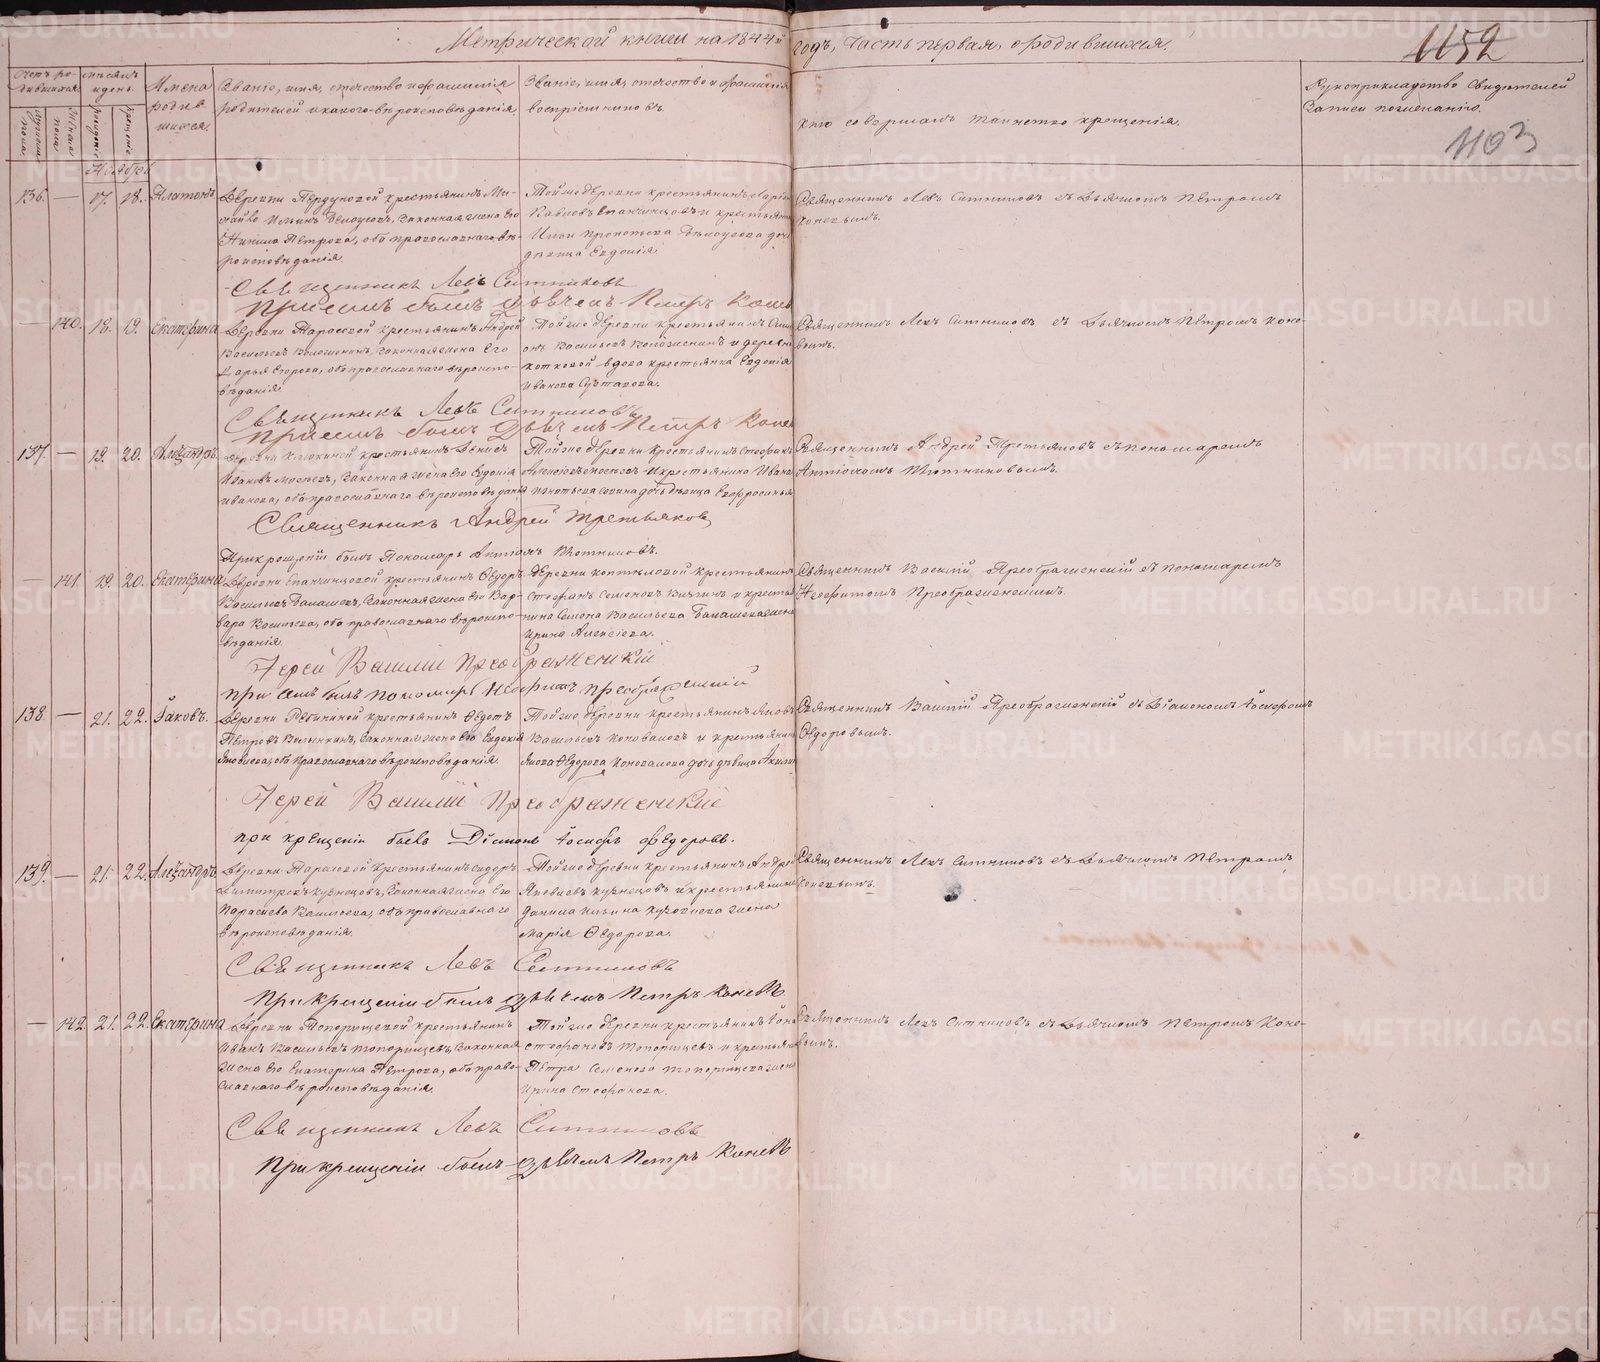 Метрической книги на 1844й годъ, часть первая, о родившихся.
1152
1103
Счетъ родившихся.
Мужеска пола.
Женска пола.
Мѣсяцъ и день.
рожденіе
крещеніе
Имена родившихся.
Званіе, имя, отчество и фамилія
родителей и какого вѣроисповѣданія.
Званіе, имя, отчество и фамилія
воспріемниковъ.
Кто совершалъ таинство крещенія.
Рукоприкладство свидѣтелей
записи по желанію.
Ноября
136. — 17. 18. Платонъ.
крестьянинъ Ми-
Ильинъ законная жена его
Петрова, оба православнаго вѣ-
роисповѣданія.
Тойже деревни крестьянинъ
и крестьян
дочь
дѣвица Евдокія.
Священникъ Левъ Ситниковъ съ Дьячкомъ Петромъ
Коневымъ.
Священникъ Левъ Ситниковъ
При семъ былъ Дьячекъ Петръ Коне
— 140. 18. 19. Екатерина
Деревни Тарасовой крестьянинъ Андрей
Васильевъ законная жена его
Дарья Егорова, оба православнаго вѣроиспо-
вѣданія.
Тойже деревни крестьянинъ
Васильевъ и деревни
вдова крестьянка Евдокія
Иванова
Священникъ Левъ Ситниковъ съ Дьячкомъ Петромъ Коне-
вымъ.
Священникъ Левъ Ситниковъ
При семъ былъ Дьячекъ Петръ Коне
137. — 19. 20. Александръ.
Деревни крестьянинъ Денисъ
Ивановъ законная жена его Евдокія
Иванова, оба православнаго вѣроисповѣданія
Тойже деревни крестьянинъ Стефанъ
и крестьянина Ивана
дочь дѣвица Евфросинья
Священникъ Андрей Третьяковъ съ пономаремъ
Антіохомъ Плотниковымъ.
Священникъ Андрей Третьяковъ
При крещеніи былъ Пономарь Антіохъ Плотниковъ.
— 141. 19. 20. Екатерина
Деревни крестьянинъ Ѳедоръ
Васильевъ Балашевъ, законная жена его Вар-
вара Васильева, оба православнаго вѣроиспо-
вѣданія.
Деревни Коптяловой крестьянинъ
Стефанъ Семеновъ и крестья-
нина Семена Васильева Балашева жена
Ирина Алексѣева.
Священникъ Василій Преображенскій съ пономаремъ
Неофитомъ Преображенскимъ.
Іерей Василій Преображенскій
При семъ былъ пономарь Неофитъ Преображенскій
138. — 21. 22. Іаковъ.
Деревни Рѣпиной крестьянинъ Ѳедотъ
Петровъ законная жена его Евдокія
Яковлева, оба православнаго вѣроисповѣданія.
Тойже деревни крестьянинъ Яковъ
Васильевъ Коноваловъ и крестьянина
Якова Ѳедорова Коновалова дочь дѣвица
Священникъ Василій Преображенскій съ Діакономъ Іосифомъ
Ѳедоровымъ.
Іерей Василій Преображенскій
при крещеніи былъ Діаконъ Іосифъ Федоровъ.
139. — 21. 22. Александръ
Деревни Тарасовой крестьянинъ Сидоръ
Димитріевъ Кузнецовъ, законная жена его
Параскева Васильева, оба православнаго
вѣроисповѣданія.
Тойже деревни крестьянинъ Андрей
Яковлевъ Кузнецовъ и крестьянина
Данила Ильина Кузнецова жена
Марія Ѳедорова.
Священникъ Левъ Ситниковъ съ Дьячкомъ Петромъ
Коневымъ.
Священникъ Левъ Ситниковъ
При крещеніи былъ дьячекъ Петръ Коневъ
— 142. 21. 22. Екатерина
Деревни Топорищевой крестьянинъ
Иванъ Васильевъ Топорищевъ, законная
жена его Екатерина Петрова, оба право-
славнаго вѣроисповѣданія.
Тойже деревни крестьянинъ
Стефановъ Топорищевъ и крестьянина
Петра Семенова Топорищева жена
Ирина Стефанова.
Священникъ Левъ Ситниковъ съ Дьячкомъ Петромъ Коне-
вымъ.
Священникъ Левъ Ситниковъ
При крещеніи былъ дьячекъ Петръ Коневъ
METRIKI.GASO-URAL.RU